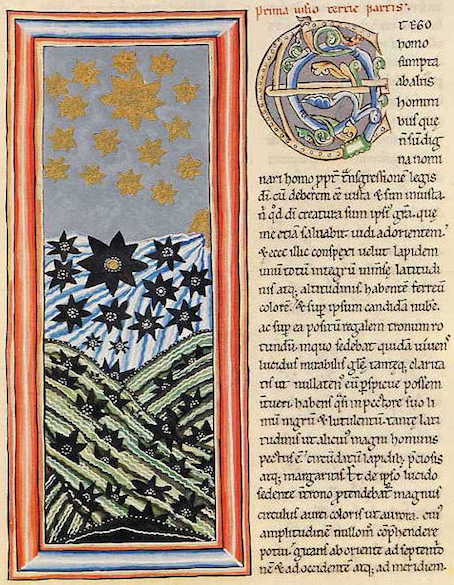 Prima uisio tercie partis.
ET EGO
homo
sumpta
ab aliis
homini
bus que
n̄ sū dig
na nomi
nari homo ppt̄ t̄nsgressionē legis
dī. cū deberem eē iusta & sum iniusta.
n̄ qd̄ dī creatura sum ipsi gr̄a. que
me etiā saluabit. uidi ad orientem.
& ecce illic conspexi uelut lapidem
unū totū integrū inmse latitudi
nis atq; altitudinis habentē ferreū
colorē. & sup ipsum candidā nubē.
ac sup eā positū regalem tronum ro
tundū. in quo sedebat quidā uiuens
lucidus mirabilis glē. tanteq; clarita
tis ut nullaten eū pspicue possem
intueri. habens qsi in pectore suo li
mū nigrū & lutulentū. tante lati
tudinis ut alicui magni hominis
pectus ē. circūdatū lapidib; p̄ciosis
atq; margaritis. Et de ipso lucido
sedente in trono p̄tendebat magnus
circulus aurei coloris ut aurora. cui
amplitudinē nullom̄ cōphendere
potui. girans ab oriente ad septentrio
nē & ad occidentē atq; ad meridiem.